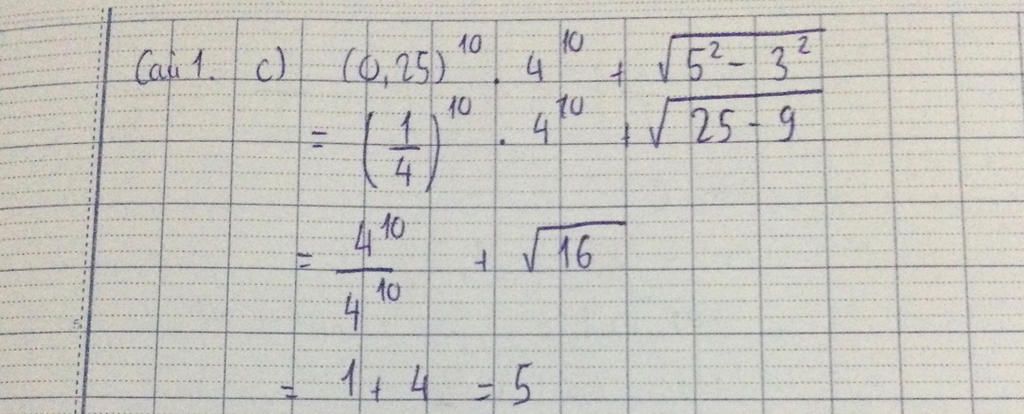 Câu 1. c) (0,25)^10 . 4^10 + √(5² - 3²)
= (1/4)^10 . 4^10 + √(25 - 9)
= 4^10/4^10 + √16
= 1 + 4 = 5